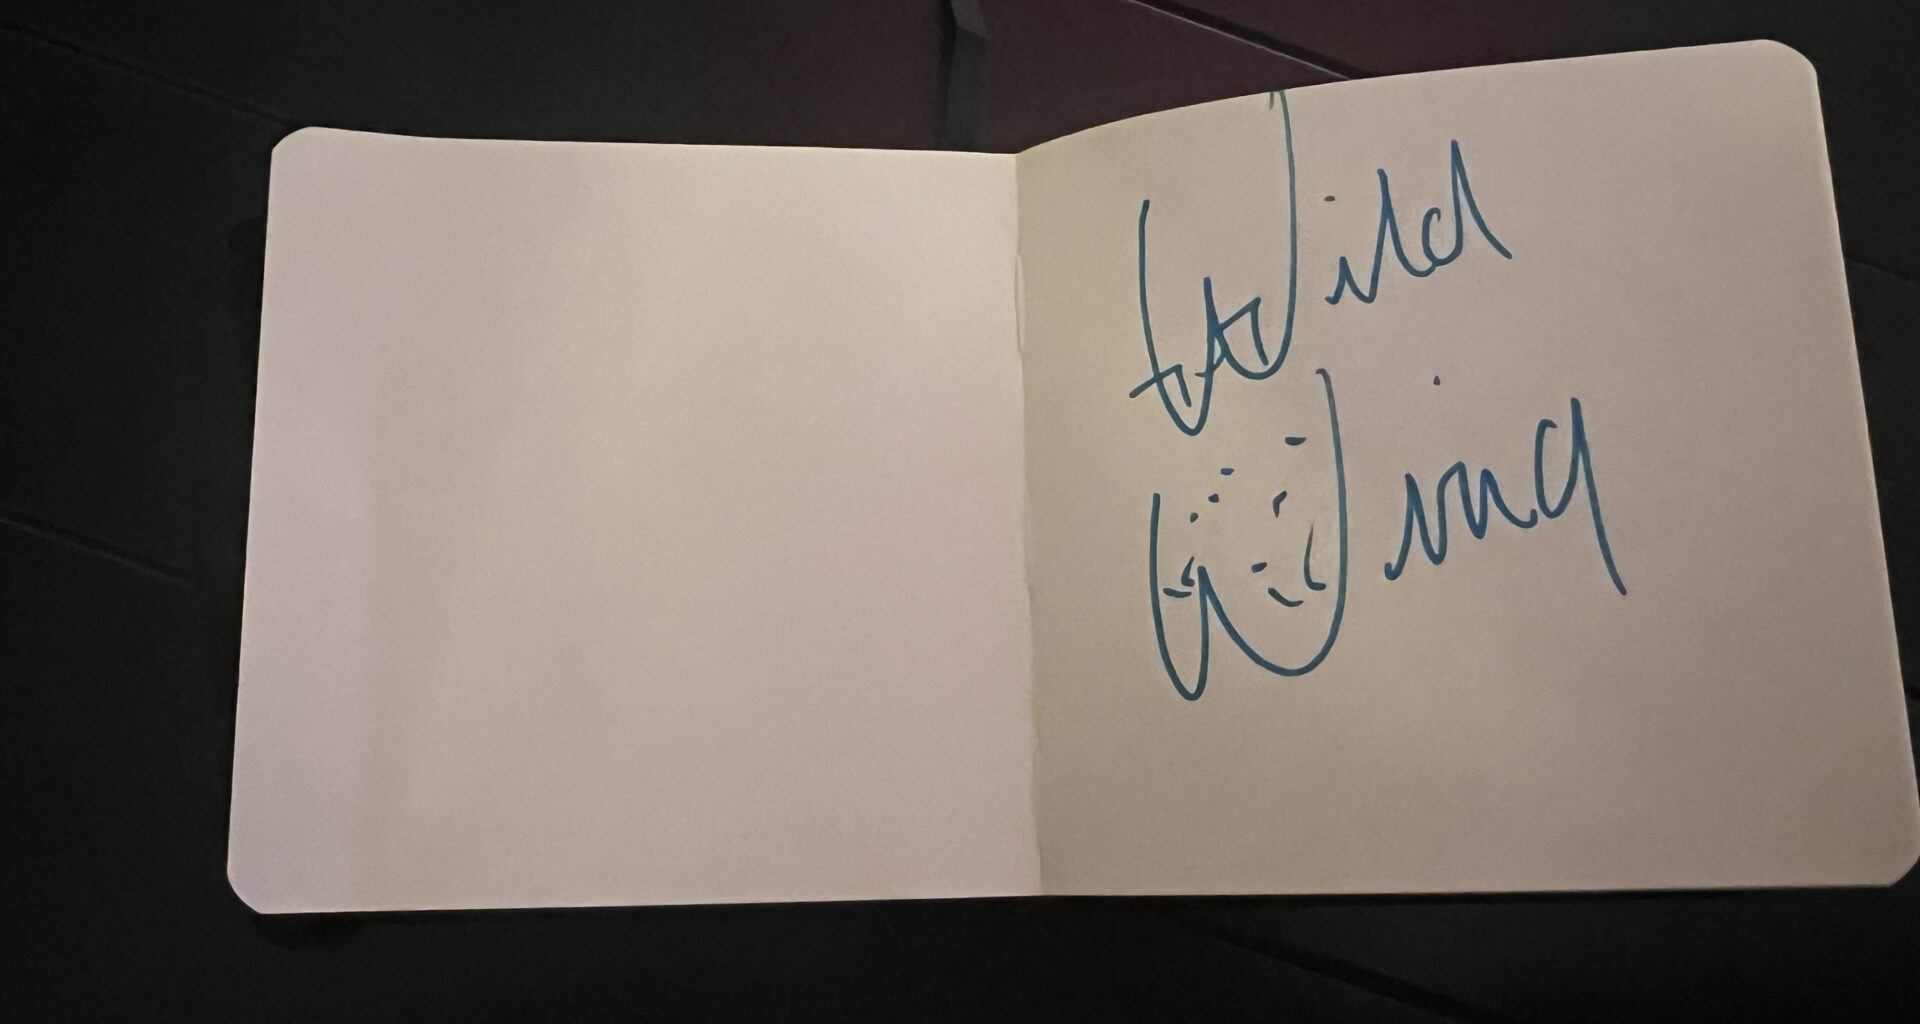 Wild
Wing